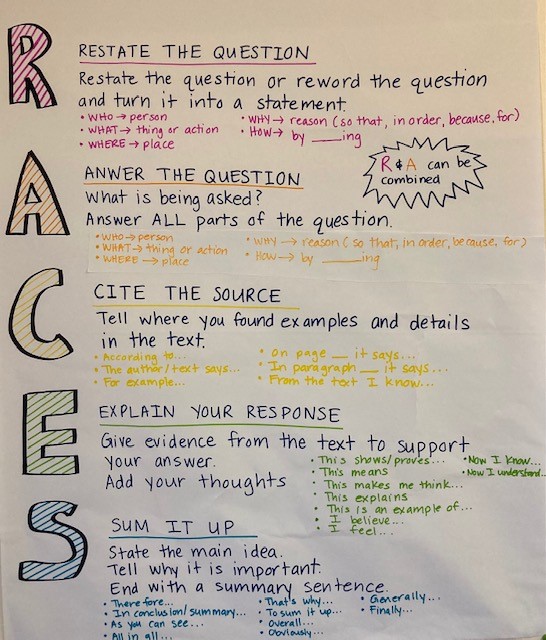 R
RESTATE THE QUESTION
Restate the question or reword the question
and turn it into a statement.
• WHO → person
• WHAT → thing or action
• WHERE → place
• WHY → reason (so that, in order, because, for)
• HOW → by ____ing
R & A can be
combined
A
ANWER THE QUESTION
What is being asked?
Answer ALL parts of the question.
• WHO → person
• WHAT → thing or action
• WHERE → place
• WHY → reason (so that, in order, because, for)
• HOW → by ____ing
C
CITE THE SOURCE
Tell where you found examples and details
in the text.
• According to...
• The author/text says...
• For example...
• On page __ it says...
• In paragraph __ it says...
• From the text I know...
E
EXPLAIN YOUR RESPONSE
Give evidence from the text to support
your answer.
Add your thoughts
• This shows/proves...
• This means
• This makes me think...
• This explains
• This is an example of...
• I believe...
• I feel...
• Now I know...
• Now I understand...
S
SUM IT UP
State the main idea.
Tell why it is important.
End with a summary sentence.
• Therefore...
• In conclusion/summary...
• As you can see...
• All in all...
• That's why...
• To sum it up...
• Overall...
• Obviously...
• Generally...
• Finally...